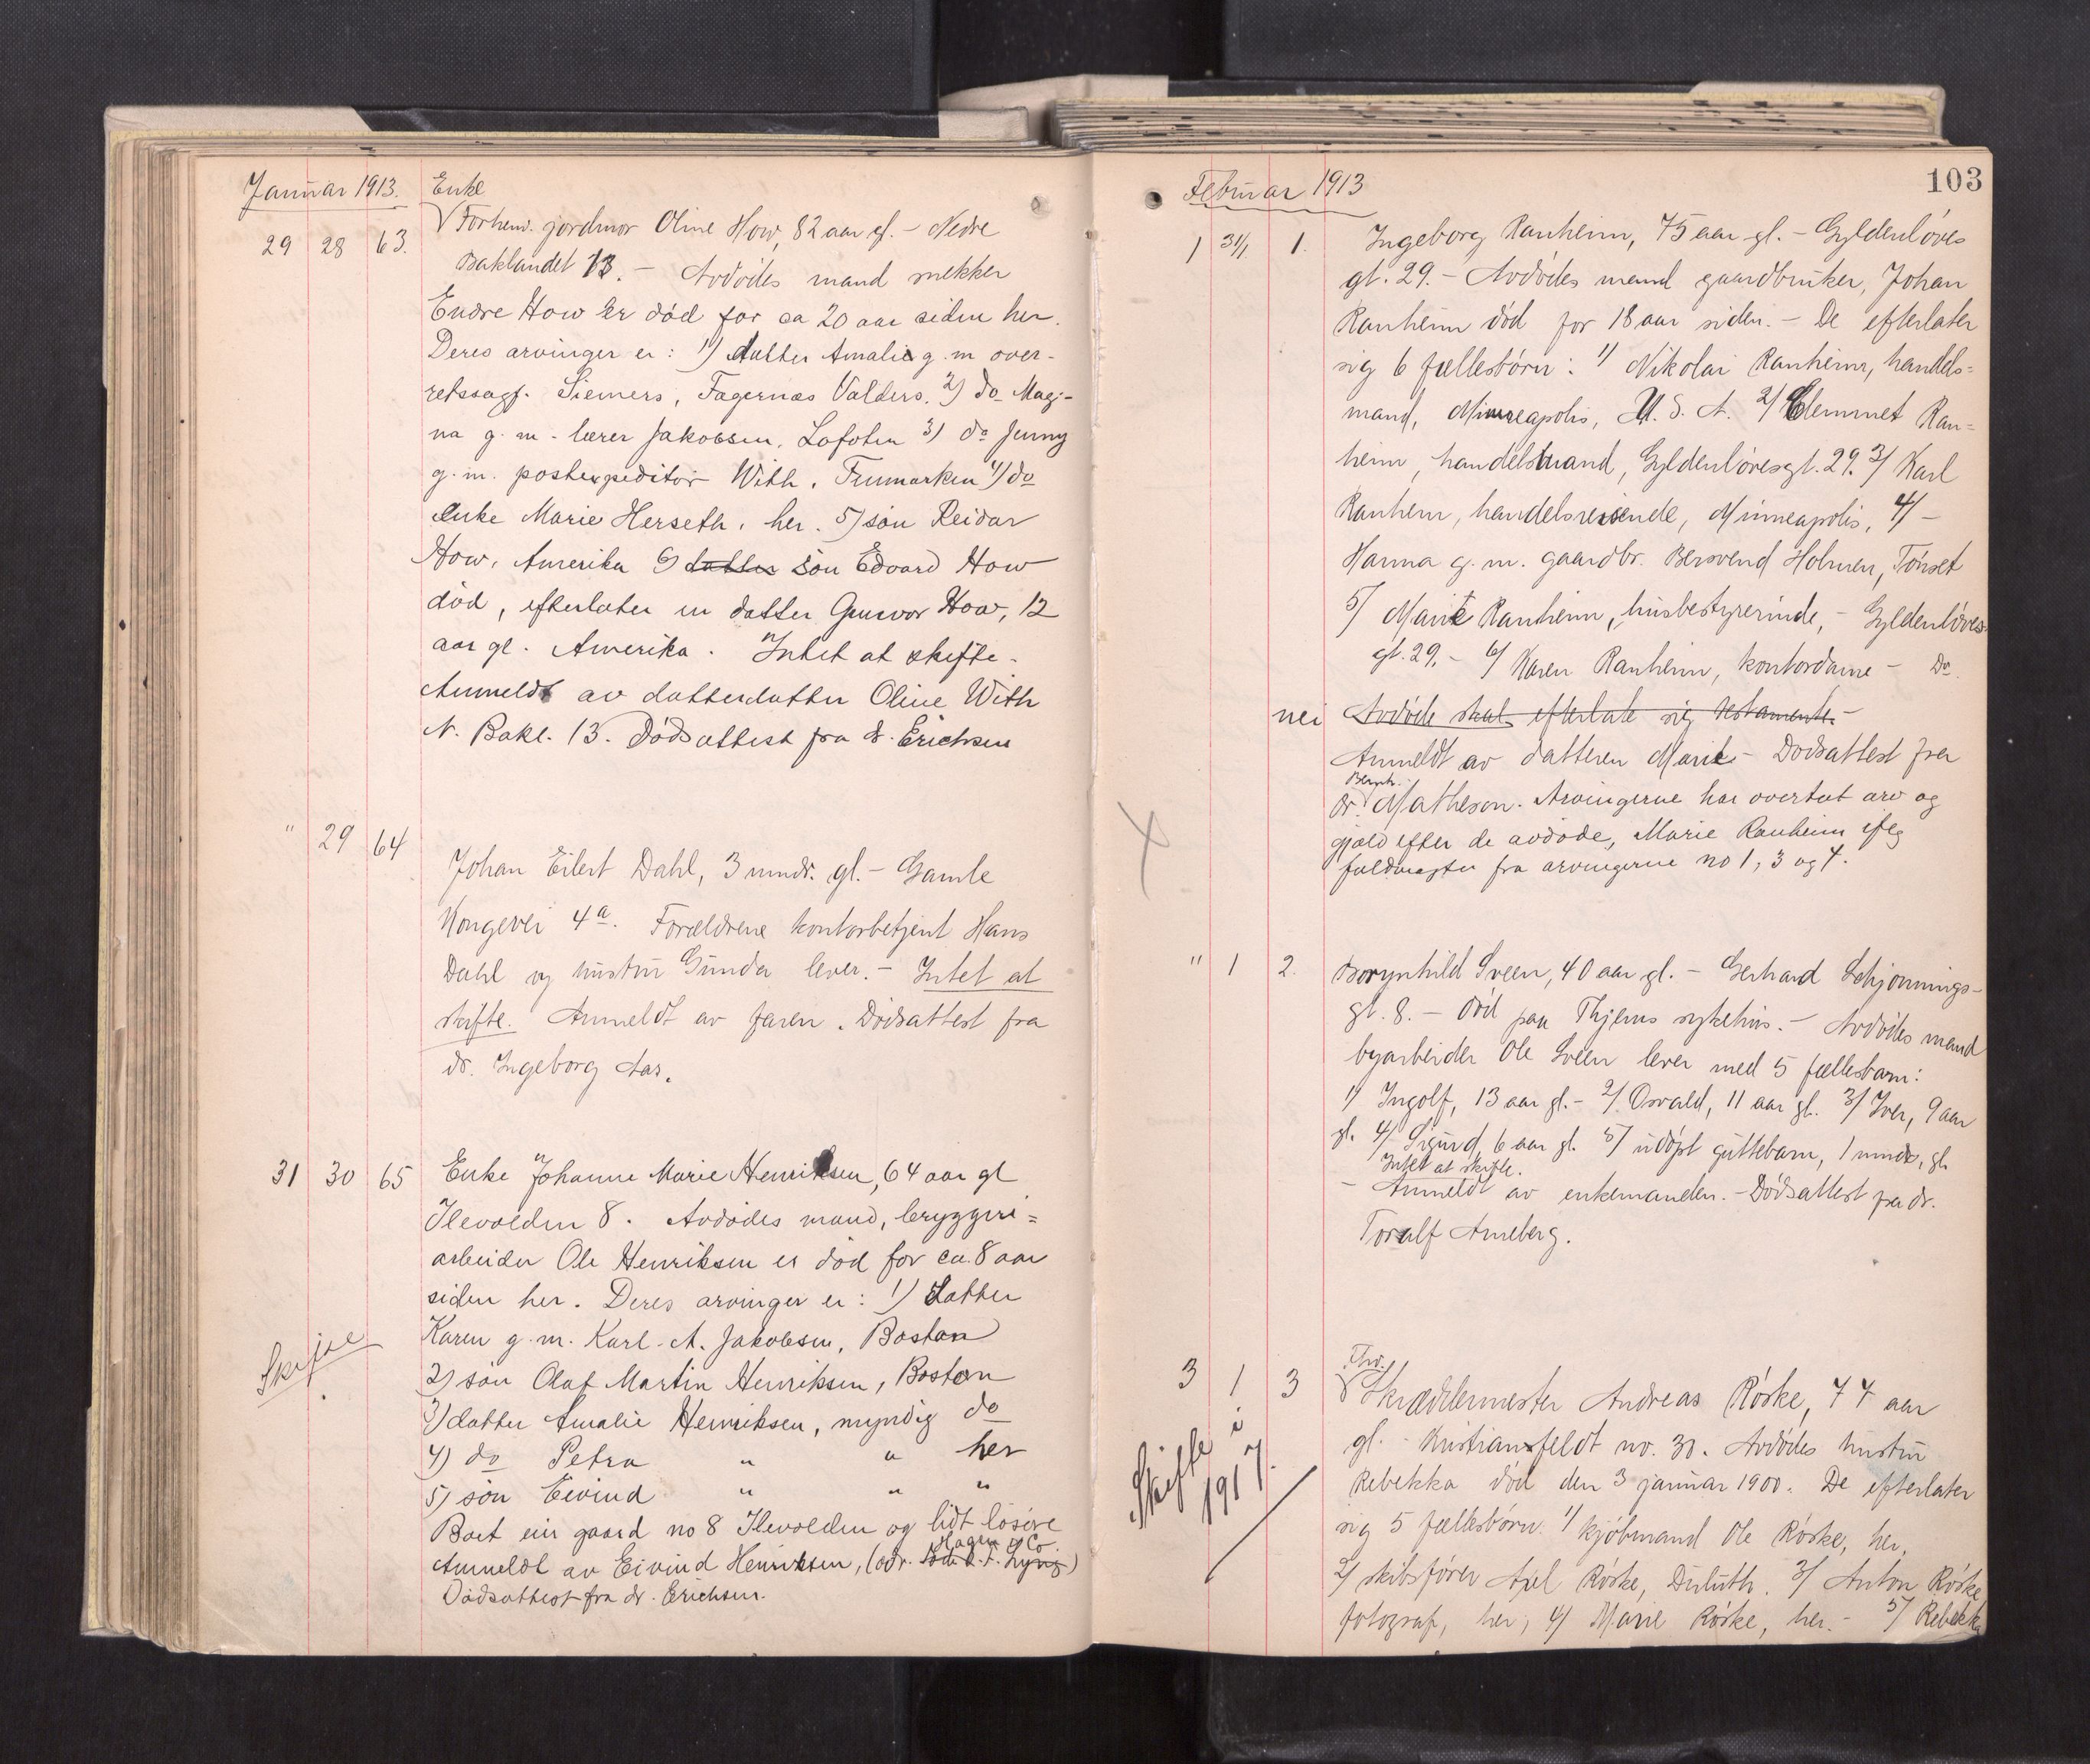 Januar 1913.
Enke
29 28 63. Forhenv. jordmor Oline How, 82 aar gl. - Nedre
Baklandet 13. - Avdödes mand snekker
Endre How er död for ca 20 aar siden her.
Deres arvinger er: 1) datter Amalie g. m over-
retssagf. Siemers, Fagernæs Valders. 2) do Mag-
na g. m. lærer Jakobsen, Lofoten 3) do Jenny
g. m. postexpeditör With, Finmarken 4) do
enke Marie Herseth, her. 5) sön Reidar
How, Amerika 6) datter sön Edvard How
död, efterlater en datter Gunvor How, 12
aar gl. Amerika. Intet at skifte.
Anmeldt av datterdatter Oline With
N. Bakl. 13. Dödsattest fra dr. Erichsen
" 29 64
Johan Eilert Dahl, 3 mndr. gl. - Gamle
Kongevei 4a. Forældrene kontorbetjent Hans
Dahl og hustru Gunda lever. - Intet at
skifte. Anmeldt av faren. Dödsattest fra
dr. Ingeborg Aas.
31 30 65 Enke Johanne Marie Henriksen, 64 aar gl
Ilevolden 8. Avdödes mand, bryggeri=
arbeider Ole Henriksen er död for ca. 8 aar
siden her. Deres arvinger er: 1) datter
Karen g. m. Karl A. Jakobsen, Boston
2) sön Olaf Martin Henriksen, Boston
3) datter Amalie Henriksen, myndig do
4) do Petra " " her
5) sön Eivind " " "
Boet eier gaard no 8 Ilevolden og lidt lösöre
Hagen & Co.
Anmeldt av Eivind Henriksen, (adr.
Dödsattest fra dr. Erichsen.
103
Februar 1913
1 31/1 1. Ingeborg Ranheim, 75 aar gl. - Gyldenlöves
gt. 29. - Avdödes mand gaardbruker, Johan
Ranheim död for 18 aar siden. - De efterlater
sig 6 fællesbörn: 1/ Nikolai Ranheim, handels=
mand, Minneapolis, U. S. A. 2/ Clemmet Ran=
heim, handelsmand, Gyldenlövesgt. 29. 3/ Karl
Ranheim, handelsreisende, Minneapolis, 4/ -
Hanna g. m. gaardbr. Bersvend Holmen, Tönset
5/ Marie Ranheim, husbestyrerinde, - Gyldenlöves-
gt. 29. - 6/ Karen Ranheim, kontordame - Do.
nei Avdöde skal efterlate sig testamente. -
Anmeldt av datteren Marie. - Dödsattest fra
Bernh.
dr. Matheson. Arvingerne har overtat arv og
gjæld efter de avdöde, Marie Ranheim iflg
fuldmagter fra arvingerne no 1, 3 og 4.
" 1 2. Borgnhild Sveen, 40 aar gl. - Gerhard Schjönnings-
gt. 8. - död paa Thjems sykehus. - Avdödes mand
byarbeider Ole Sveen lever med 5 fællesbarn:
1/ Ingolf, 13 aar gl. - 2/ Osvald, 11 aar gl. 3/ Iver, 9 aar
gl. 4/ Sigurd, 6 aar gl. 5/ udöpt guttebarn, 1 mnds. gl.
Intet at skifte.
- Anmeldt av enkemanden. - Dödsattest fra dr.
Toralf Arneberg.
Fhv.
3 1 3 Skræddermester Andreas Röske, 74 aar
gl. - Kristiansfeldt no. 30. Avdödes hustru
Skifte i
1917.
Rebekka död den 3 januar 1900. De efterlater
sig 5 fællesbörn. 1/ kjöbmand Ole Röske, her,
2/ skibsförer Axel Röske, Duluth. 3/ Anton Röske
fotograf, her, 4/ Marie Röske, her. - 5/ Rebekka